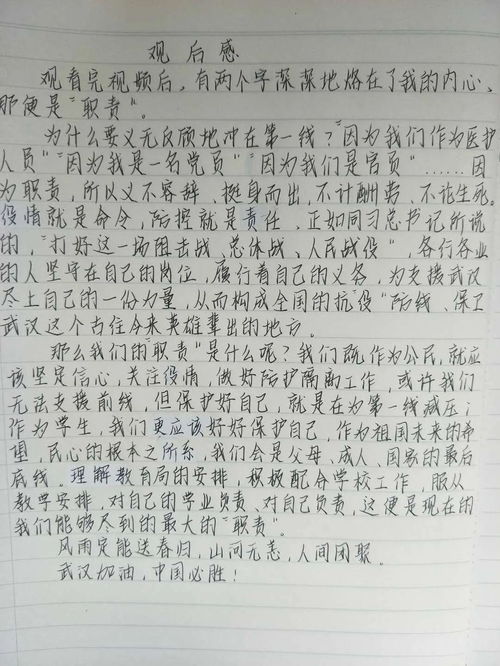 观后感
观看完视频后，有两个字深深地烙在了我的内心、
那便是“职责”。
为什么要义无反顾地冲在第一线？“因为我们作为医护
人员”“因为我是一名党员”“因为我们是官员”……因
为职责，所以义不容辞、挺身而出，不计酬劳、不论生死。
疫情就是命令，防控就是责任、正如同习总书记所说
的，“打好这一场阻击战、总体战、人民战役”，各行各业
的人坚守在自己的岗位，履行着自己的义务，为支援武汉
尽上自己的一份力量，从而构成全国的抗疫“防线、保卫
武汉这个古往今来英雄辈出的地方。
那么我们的“职责”是什么呢？我们既作为公民，就应
该坚定信心，关注疫情，做好防护隔离工作，或许我们
无法支援前线，但保护好自己，就是在为第一线减压；
作为学生，我们更应该好好保护自己，作为祖国未来的希
望，民心的根本之所系，我们会是父母、成人、国家的最后
底线。理解教育局的安排，积极配合学校工作，服从
教学安排，对自己的学业负责、对自己负责，这便是现在的
我们能够尽到的最大的“职责”。
风雨定能送春归，山河无恙，人间团聚。
武汉加油，中国必胜！